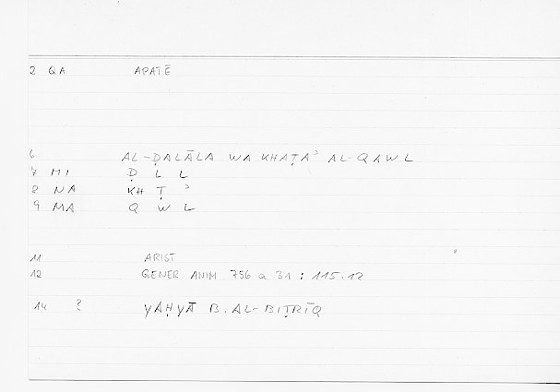 2 QA APATĒ
6 AL-ḌALĀLA WA KHAṬAʾ AL-QAWL
7 MI Ḍ L L
8 NA KH Ṭ ʾ
9 MA Q W L
11 ARIST
12 GENER ANIM 756 a 31 : 115.12
14 ? YAḤYĀ B. AL-BIṬRĪQ